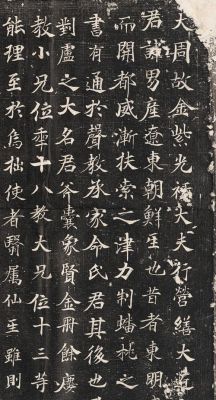 大周故金紫光祿大夫行營繕大匠
君諱男産遼東朝鮮𤯔也昔者東明
而開都威漸扶索之津力制蟠桃之
書有通於聲教承家命氏君其後也
對盧之大名君斧囊象賢金冊餘慶
教小兄位𠡦十八教大兄位十三等
能理至於烏拙使者翳屬仙𤯔雖則